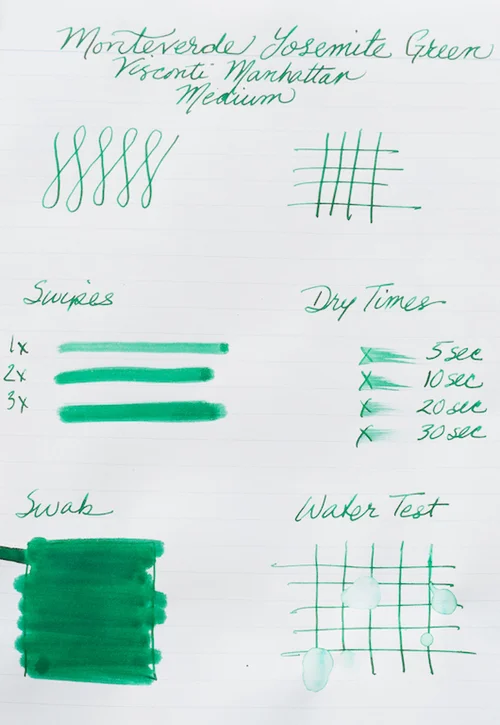 Monteverde Yosemite Green
Visconti Manhattan
Medium
Swipes
1x
2x
3x
Dry Times
X 5 sec
X 10 sec
X 20 sec
X 30 sec
Swab
Water Test